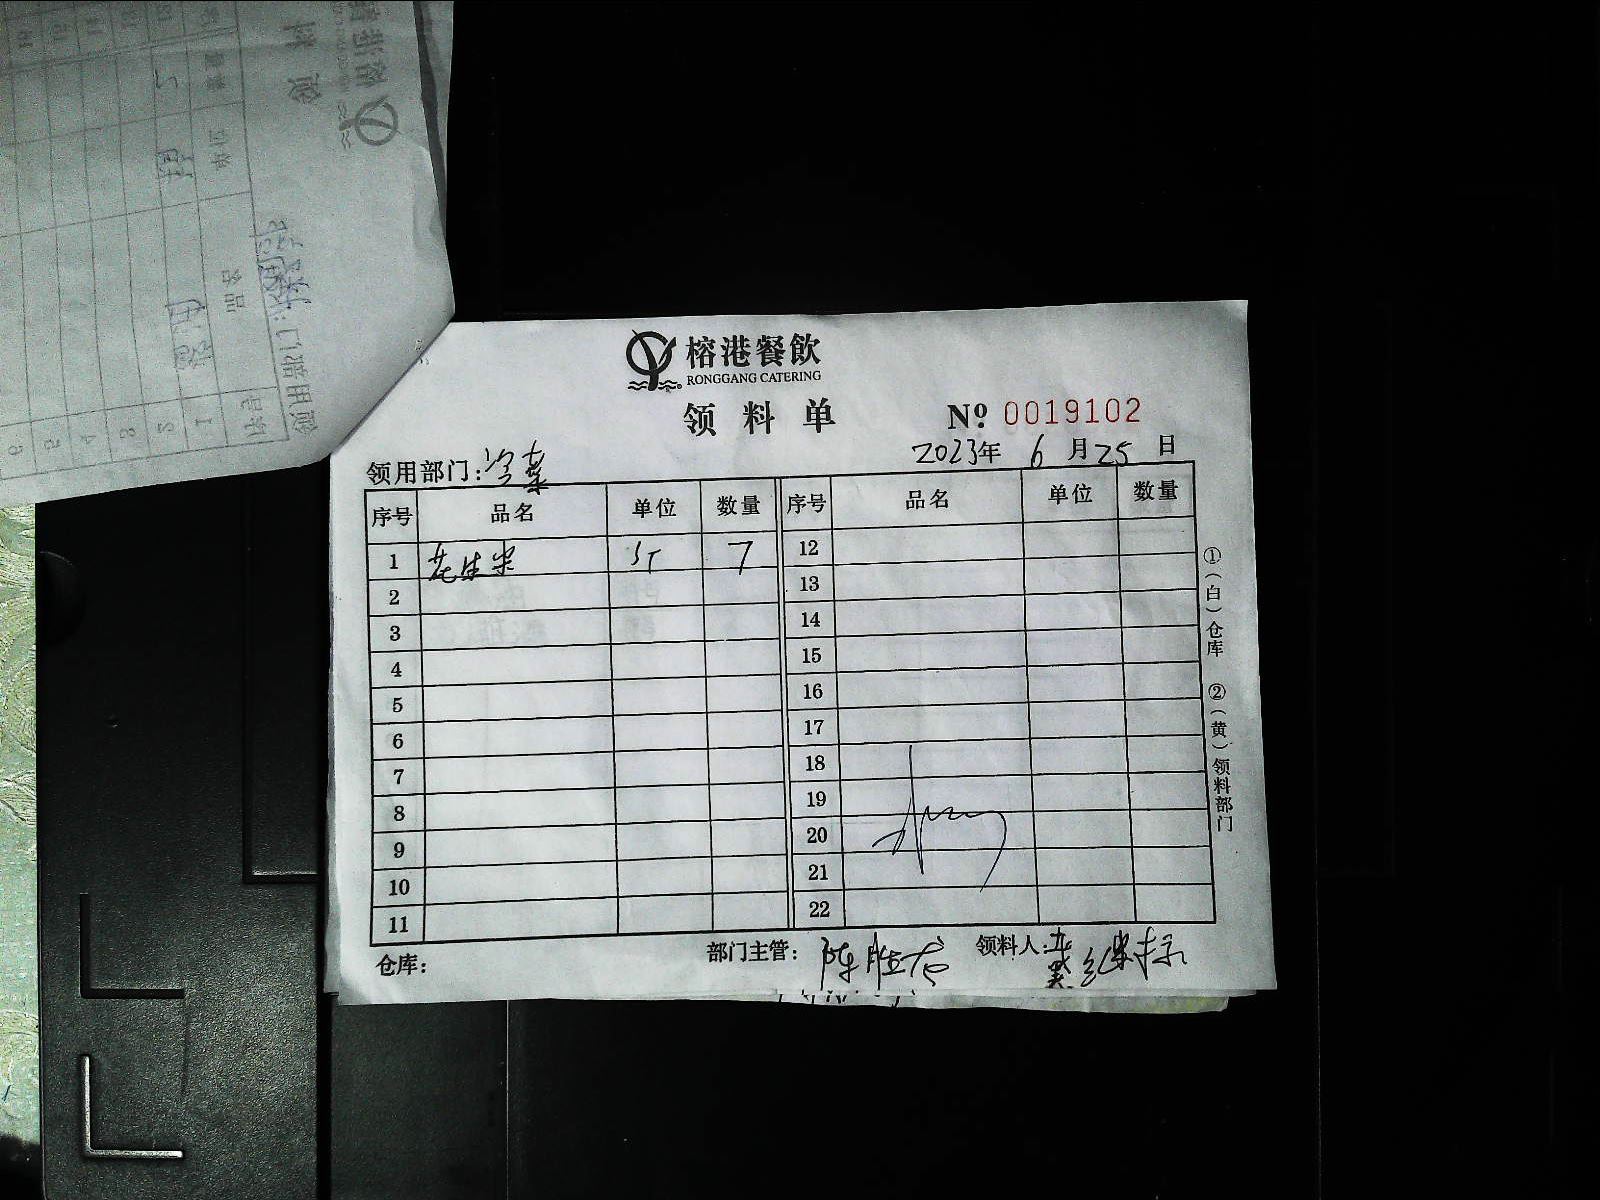 榕港餐飲
RONGGANG CATERING
领料单 Nº 0019102
2023年 6 月 25 日
领用部门: 冷菜
序号 品名 单位 数量 序号 品名 单位 数量
1 花生米 斤 7 12
2 13
3 14
4 15
5 16
6 17
7 18
8 19
9 20
10 21
11 22
仓库: 部门主管: 陈胜 领料人:
①(白)仓库 ②(黄)领料部门